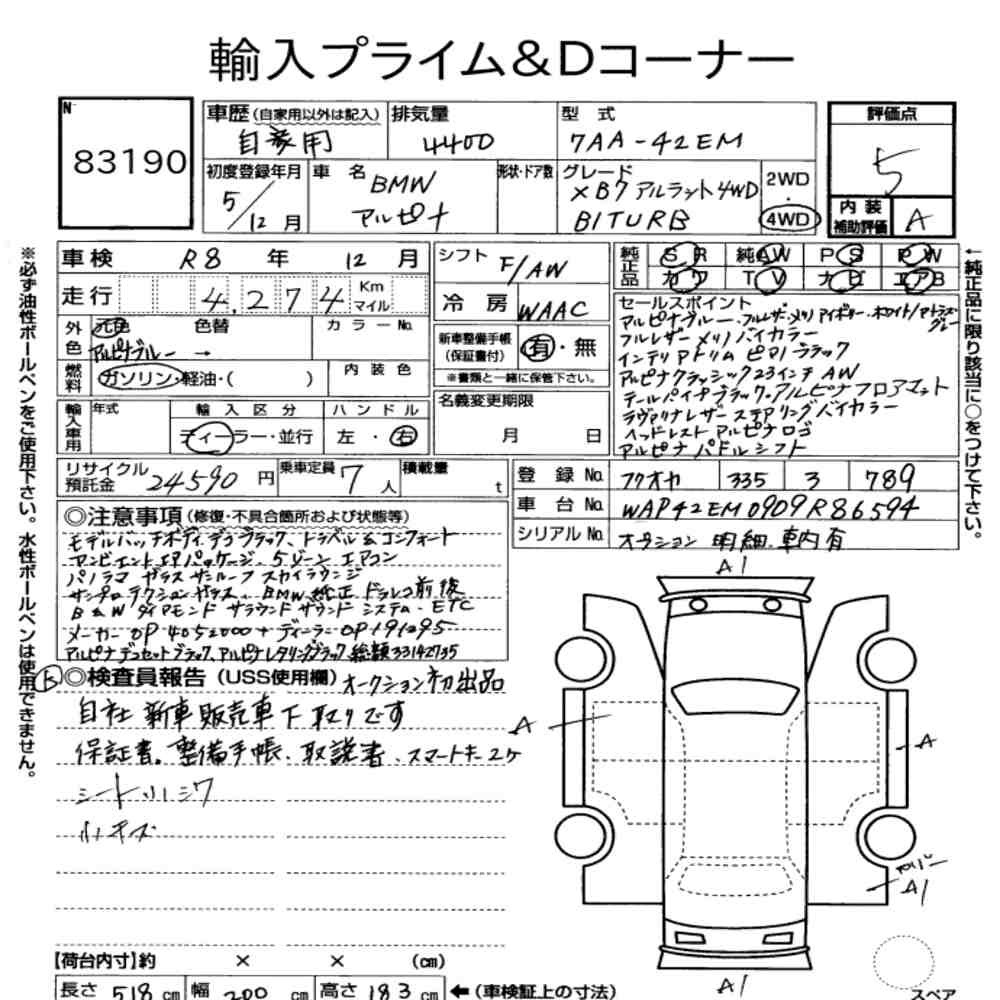 輸入プライム&Dコーナー
N
83190
車歴(自家用以外は記入)
自家用
排気量
4400
型式
7AA-42EM
評価点
5
内装
補助評価
A
初度登録年月
5/12月
車名
BMW
アルピナ
形状・ドア数
グレード
XB7アルラット4WD
BITURB
2WD
4WD
※必ず油性ボールペンをご使用下さい。水性ボールペンは使用できません。
車検 R8 年 12 月
走行 4,274 Km マイル
外色
元色 色替
アルピナブルー →
カラーNo.
燃料
ガソリン・軽油・( )
内装色
輸入車用
年式
輸入区分
ディーラー・並行
ハンドル
左・右
リサイクル預託金 24590 円
乗車定員 7 人
積載量 t
シフト F/AW
冷房 WAAC
新車整備手帳(保証書付) 有・無
※書類と一緒に保管下さい。
名義変更期限
月 日
純正品
SR 純AW PS PW
カワ TV ナビ エアB
←純正品に限り該当に○をつけて下さい。
セールスポイント
アルピナブルー・フルレザーメリノ アイボリーホワイト/アトラスグレー
フルレザーメリノバイカラー
インテリアトリムピアノブラック
アルピナクラシック23インチAW
テールパイプブラック・アルピナフロアマット
ラヴァリナレザーステアリングバイカラー
ヘッドレストアルピナロゴ
アルピナパドルシフト
登録No. フクオカ 335 ろ 789
車台No. WAP42EM0909R86594
シリアルNo. オプション明細.車内有
◎注意事項(修復・不具合箇所および状態等)
モデルハッチボディ.デコブラック、トラベル&コンフォート
アンビエントエアパッケージ.5ゾーンエアコン
パノラマガラスサンルーフスカイラウンジ
サンプロテクションガラス.BMW純正ドラレコ前後
B&Wダイアモンドサラウンドサウンドシステム・ETC
メーカーOP4052000+ディーラーOP191295
アルピナデコセットブラック、アルピナレタリングブラック総額33142735
◎検査員報告(USS使用欄)オークション初出品
自社新車販売車下取りです
保証書。整備手帳、取説書、スマートキー2ケ
シート小シワ
小キズ
【荷台内寸】約 × × (cm)
長さ 518 cm 幅 200 cm 高さ 183 cm ←(車検証上の寸法)
A1
A
A
A1
A1
スペア